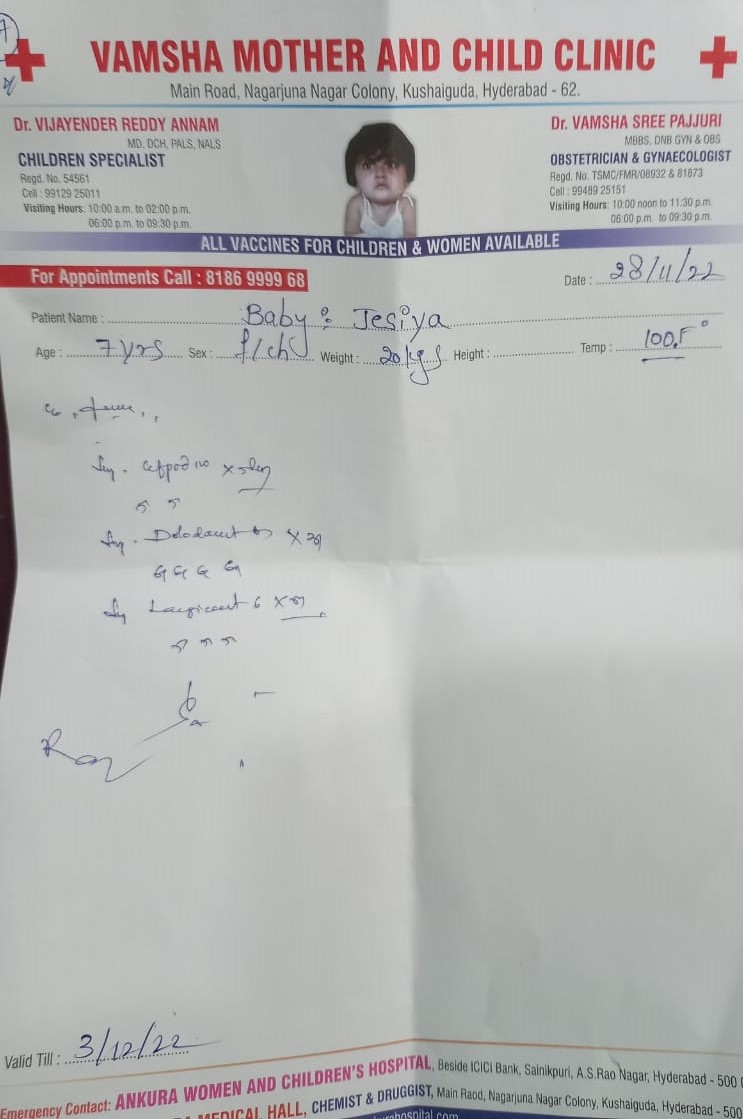 VAMSHA MOTHER AND CHILD CLINIC
Main Road, Nagarjuna Nagar Colony, Kushaiguda, Hyderabad - 62.
Dr. VIJAYENDER REDDY ANNAM
MD, DCH, PALS, NALS
CHILDREN SPECIALIST
Regd. No. 54561
Cell : 99129 25011
Visiting Hours: 10:00 a.m. to 02:00 p.m.
06:00 p.m. to 09:30 p.m.
Dr. VAMSHA SREE PAJJURI
MBBS, DNB GYN & OBS
OBSTETRICIAN & GYNAECOLOGIST
Regd. No. TSMC/FMR/08932 & 81873
Cell : 99489 25151
Visiting Hours: 10:00 noon to 11:30 p.m.
06:00 p.m. to 09:30 p.m.
ALL VACCINES FOR CHILDREN & WOMEN AVAILABLE
For Appointments Call : 8186 9999 68
Date : 28/11/22
Patient Name : Baby : Jesiya
Age : 7 yrs Sex : f/ch Weight : 20 kgs Height : Temp : 100.5°
Valid Till : 3/12/22
Emergency Contact: ANKURA WOMEN AND CHILDREN'S HOSPITAL, Beside ICICI Bank, Sainikpuri, A.S.Rao Nagar, Hyderabad - 500
MEDICAL HALL, CHEMIST & DRUGGIST, Main Raod, Nagarjuna Nagar Colony, Kushaiguda, Hyderabad - 500